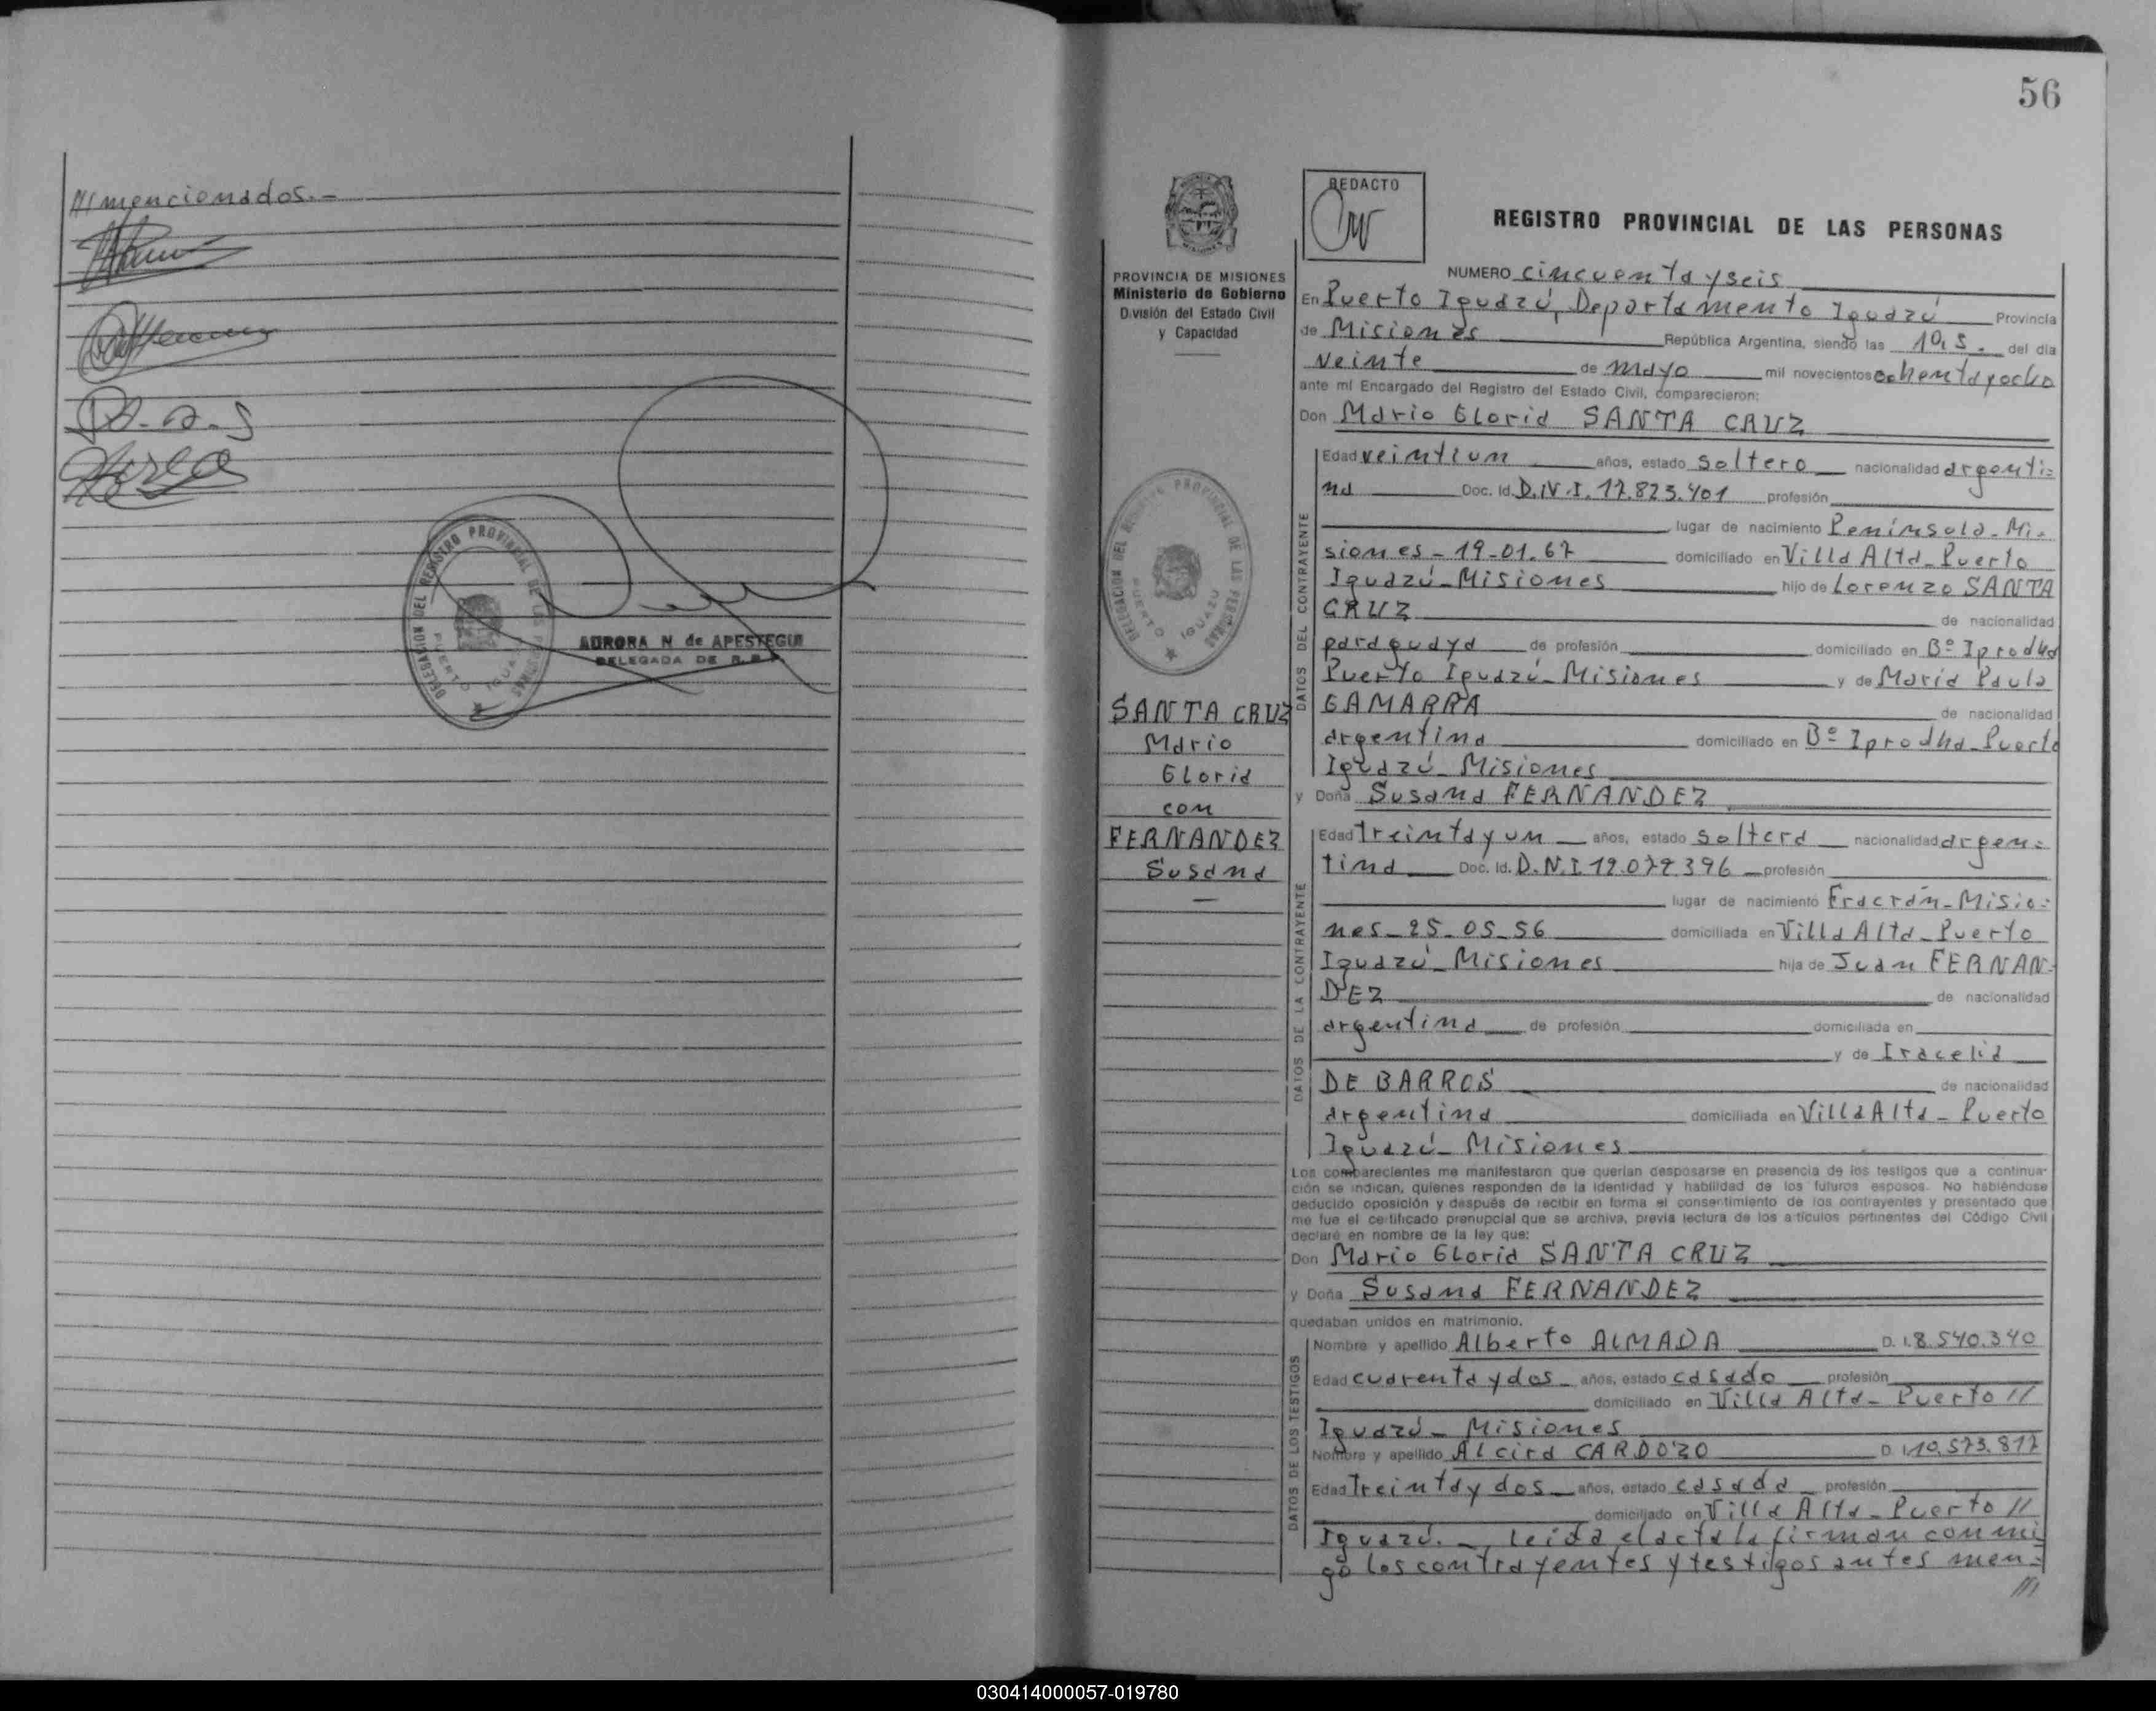 /// mencionados.-
AURORA N de APESTEGUI
DELEGADA DE R. P.
DELEGACION DEL REGISTRO PROVINCIAL DE LAS PERSONAS
PUERTO IGUAZU
56
PROVINCIA DE MISIONES
Ministerio de Gobierno
División del Estado Civil
y Capacidad
DELEGACION DEL REGISTRO PROVINCIAL DE LAS PERSONAS
PUERTO IGUAZU
SANTA CRUZ
Mario
Gloria
con
FERNANDEZ
Susana
—
REDACTO
REGISTRO PROVINCIAL DE LAS PERSONAS
NUMERO cincuenta y seis
En Puerto Iguazú, Departamento Iguazú Provincia
de Misiones República Argentina, siendo las 10,5. del día
veinte de mayo mil novecientos ochenta y ocho
ante mí Encargado del Registro del Estado Civil, comparecieron:
Don Mario Gloria SANTA CRUZ
DATOS DEL CONTRAYENTE
Edad veintiun años, estado soltero nacionalidad argenti=
na Doc. Id. D.N.I. 17.823.401 profesión
lugar de nacimiento Península - Mi=
siones - 19-01.67 domiciliado en Villa Alta - Puerto
Iguazú - Misiones hijo de Lorenzo SANTA
CRUZ de nacionalidad
paraguaya de profesión domiciliado en Bº Iprodha
Puerto Iguazú - Misiones y de María Paula
GAMARRA de nacionalidad
argentina domiciliado en Bº Iprodha - Puerto
Iguazú - Misiones
y Doña Susana FERNANDEZ
DATOS DE LA CONTRAYENTE
Edad treinta y un años, estado soltera nacionalidad argen=
tina Doc. Id. D.N.I. 12.077.396 profesión
lugar de nacimiento Fracrán - Misio=
nes - 25-05-56 domiciliada en Villa Alta - Puerto
Iguazú - Misiones hija de Juan FERNAN-
DEZ de nacionalidad
argentina de profesión domiciliada en
y de Iracelia
DE BARROS de nacionalidad
argentina domiciliada en Villa Alta - Puerto
Iguazú - Misiones
Los comparecientes me manifestaron que querían desposarse en presencia de los testigos que a continua-
ción se indican, quienes responden de la identidad y habilidad de los futuros esposos. No habiéndose
deducido oposición y después de recibir en forma el consentimiento de los contrayentes y presentado que
me fue el certificado prenupcial que se archiva, previa lectura de los artículos pertinentes del Código Civil
declaré en nombre de la ley que:
Don Mario Gloria SANTA CRUZ
y Doña Susana FERNANDEZ
quedaban unidos en matrimonio.
DATOS DE LOS TESTIGOS
Nombre y apellido Alberto ALMADA D. I. 8.540.340
Edad cuarenta y dos años, estado casado profesión
domiciliado en Villa Alta - Puerto //
Iguazú - Misiones
Nombre y apellido Alcira CARDOZO D. I. 10.573.817
Edad treinta y dos años, estado casada profesión
domiciliado en Villa Alta - Puerto //
Iguazú. -, leída el acta la firman conmi
go los contrayentes y testigos antes men=
///
030414000057-019780